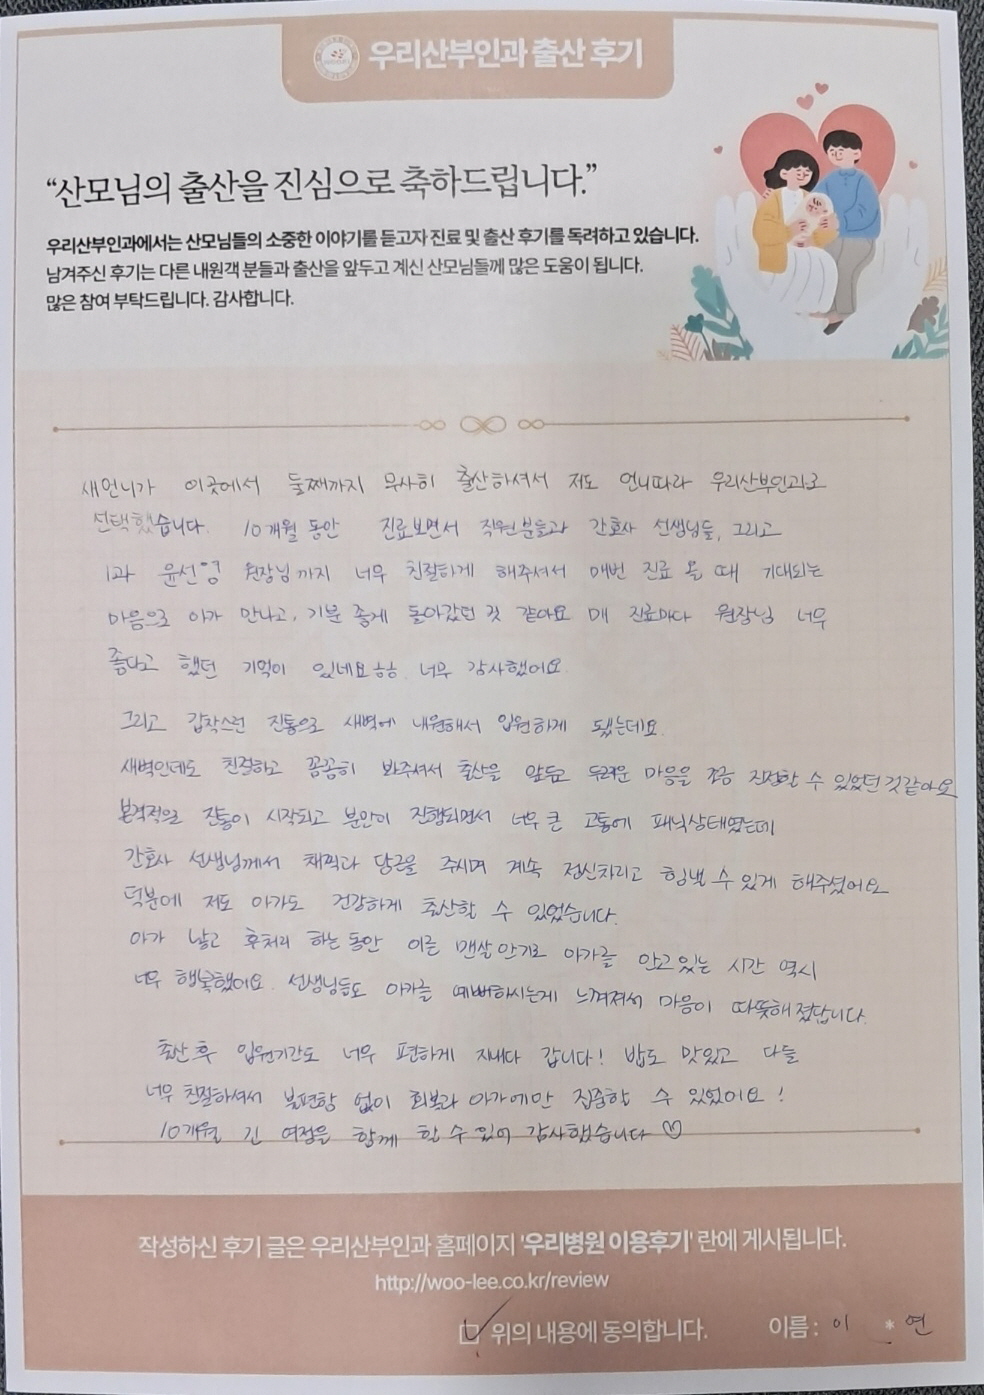 우리산부인과 출산 후기
“산모님의 출산을 진심으로 축하드립니다.”
우리산부인과에서는 산모님들의 소중한 이야기를 듣고자 진료 및 출산 후기를 독려하고 있습니다.
남겨주신 후기는 다른 내원객 분들과 출산을 앞두고 계신 산모님들께 많은 도움이 됩니다.
많은 참여 부탁드립니다. 감사합니다.
새언니가 이곳에서 둘째까지 무사히 출산하셔서 저도 언니따라 우리산부인과로
선택했습니다. 10개월 동안 진료보면서 직원분들과 간호사 선생님들, 그리고
1과 윤선영 원장님까지 너무 친절하게 해주셔서 매번 진료 올 때 기대되는
마음으로 아가 만나고, 기분 좋게 돌아갔던 것 같아요 매 진료마다 원장님 너무
좋다고 했던 기억이 있네요ㅎㅎ. 너무 감사했어요.
그리고 갑작스런 진통으로 새벽에 내원해서 입원하게 됐는데요.
새벽인데도 친절하고 꼼꼼히 봐주셔서 출산을 앞두고 두려운 마음을 조금 진정할 수 있었던 것같아요
본격적으로 진통이 시작되고 분만이 진행되면서 너무 큰 고통에 패닉상태였는데
간호사 선생님께서 채찍과 당근을 주시며 계속 정신차리고 힘낼 수 있게 해주셨어요
덕분에 저도 아가도 건강하게 출산할 수 있었습니다.
아가 낳고 후처리 하는동안 이른 맨살 안기로 아가를 안고있는 시간 역시
너무 행복했어요. 선생님들도 아가를 예뻐하시는게 느껴져서 마음이 따뜻해졌답니다.
출산 후 입원기간도 너무 편하게 지내다 갑니다! 밥도 맛있고 다들
너무 친절하셔서 불편함 없이 회복과 아가에만 집중할 수 있었어요!
10개월 긴 여정을 함께 할 수 있어 감사했습니다 ♡
작성하신 후기 글은 우리산부인과 홈페이지 '우리병원 이용후기' 란에 게시됩니다.
http://woo-lee.co.kr/review
위의 내용에 동의합니다. 이름 : 이 * 연